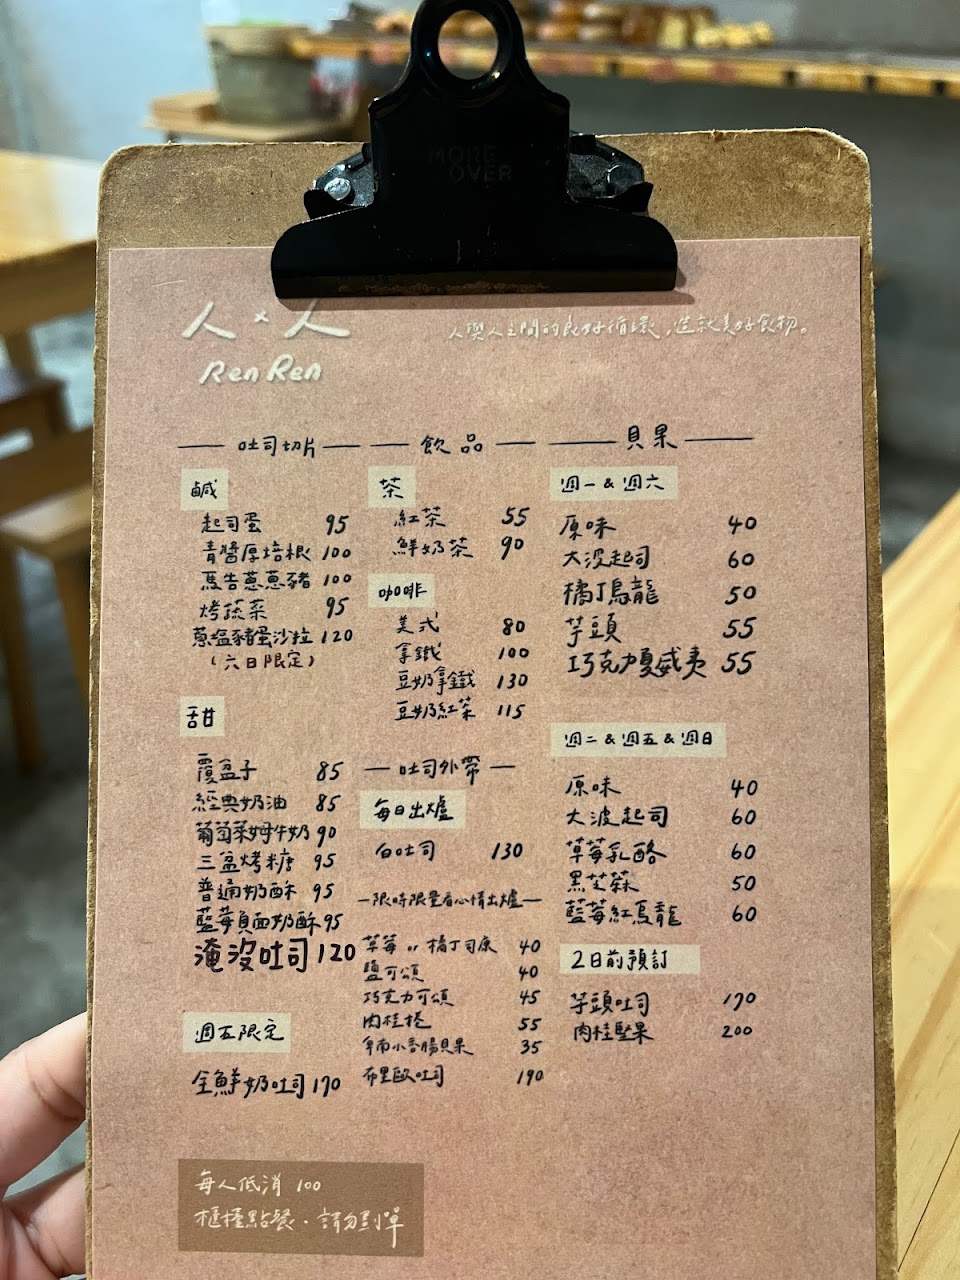 MORE
OVER
人×人
Ren Ren
人與人之間的良好循環,造就美好食物。
吐司切片
鹹
起司蛋 95
青醬厚培根 100
馬告蔥蔥豬 100
烤蔬菜 95
蔥塩豬蛋沙拉 120
(六日限定)
甜
覆盆子 85
經典奶油 85
葡萄萊姆牛奶 90
三盆烤糖 95
普通奶酥 95
藍莓負面奶酥 95
淹沒吐司 120
週五限定
全鮮奶吐司 170
飲品
茶
紅茶 55
鮮奶茶 90
咖啡
美式 80
拿鐵 100
豆奶拿鐵 130
豆奶紅茶 115
吐司外帶
每日出爐
白吐司 130
限時限量看心情出爐
草莓 or 橘丁司康 40
鹽可頌 40
巧克力可頌 45
肉桂捲 55
小香腸貝果 35
布里歐吐司 190
貝果
週一 & 週六
原味 40
大波起司 60
橘丁烏龍 50
芋頭 55
巧克力夏威夷 55
週二 & 週五 & 週日
原味 40
大波起司 60
草莓乳酪 60
黑芝麻 50
藍莓紅烏龍 60
2日前預訂
芋頭吐司 170
肉桂堅果 200
每人低消 100
櫃檯點餐.請勿劃單